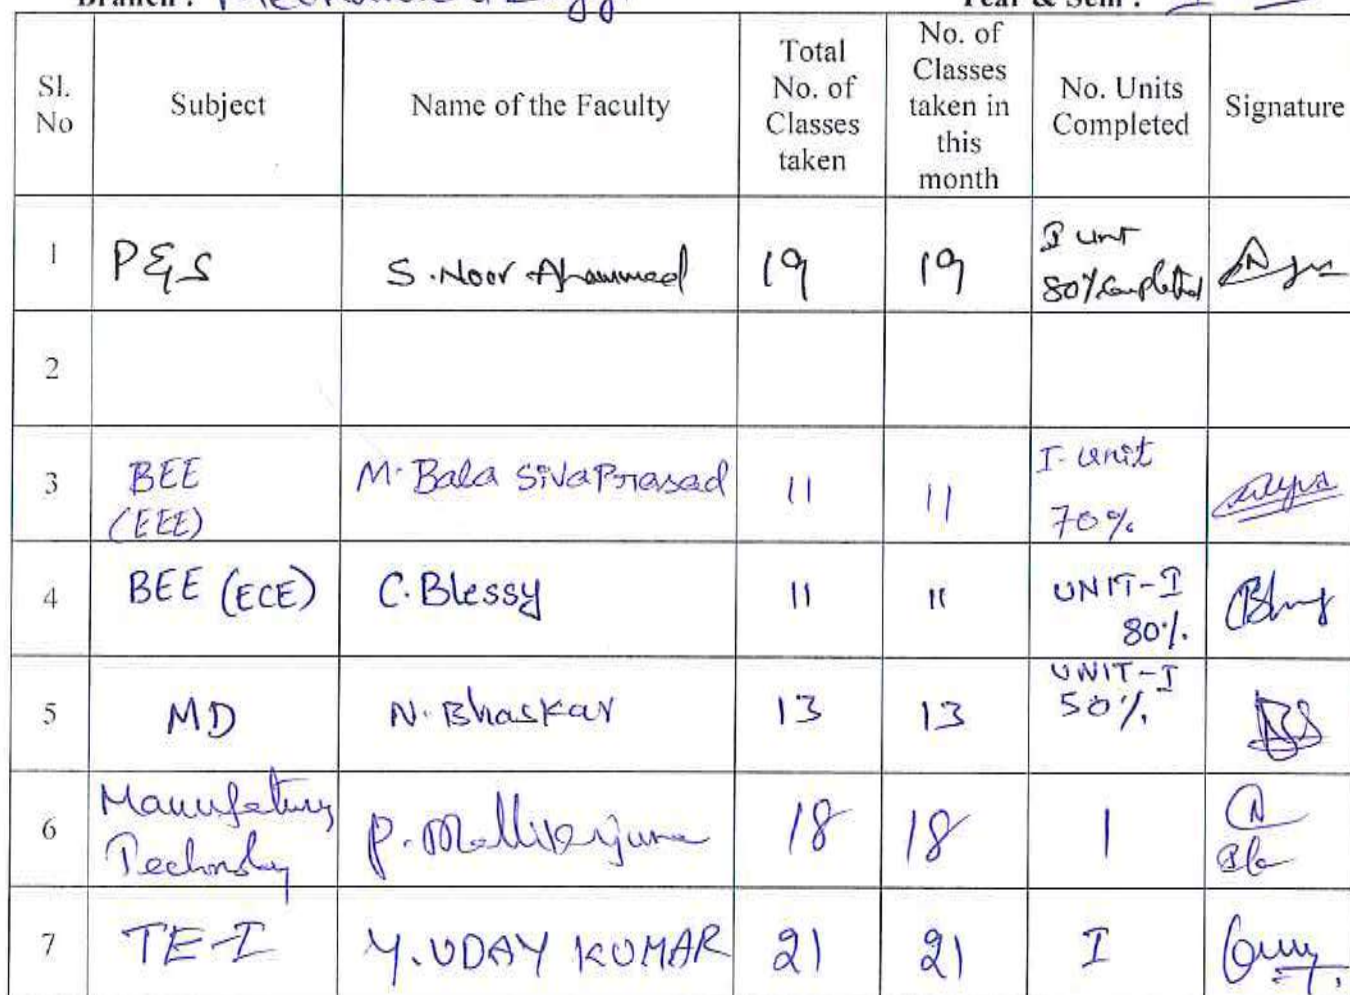 Branch : Mechanical Engg. Year & Sem :
Sl. No Subject Name of the Faculty Total No. of Classes taken No. of Classes taken in this month No. Units Completed Signature
1 P&S S. Noor Ahammed 19 19 I unit 80% Completed
2
3 BEE (EEE) M. Bala Siva Prasad 11 11 I- unit 70%
4 BEE (ECE) C. Blessy 11 11 UNIT-I 80%.
5 MD N. Bhaskar 13 13 UNIT-I 50%.
6 Manufacturing Technology P. Mallikarjuna 18 18 1
7 TE-I Y. UDAY KUMAR 21 21 I